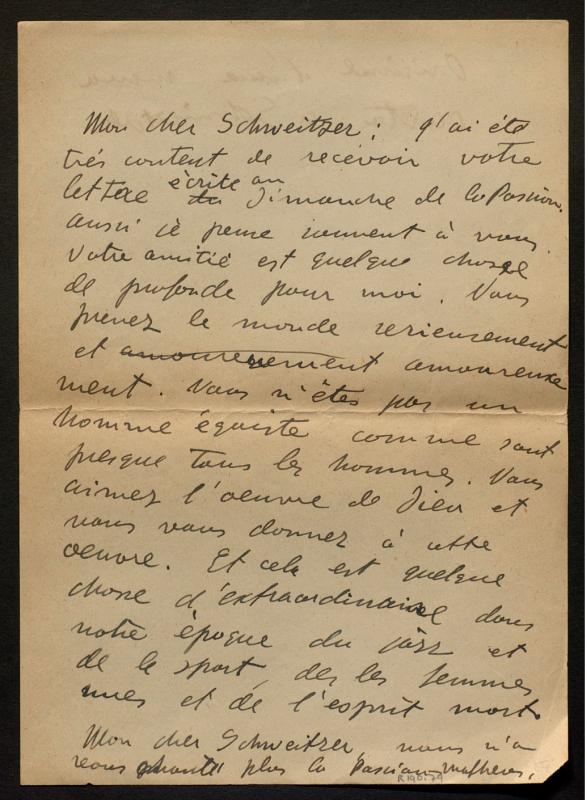 Mon cher Schweitzer: J'ai été
très content de recevoir votre
lettre écrite au Dimanche de la Passion.
aussi je pense souvent à vous.
Votre amitié est quelque chose
de profonde pour moi. Vous
prenez le monde serieusement
et amoureusement amoureuse
ment. Vous n'êtes pas un
homme égoiste comme sont
presque tous les hommes. Vous
aimez l'oeuvre de Dieu et
vous vous donnez à cette
oeuvre. Et cela est quelque
chose d'extraordinaire dans
notre époque du jazz et
de la sport, des les femmes
nues et de l'esprit mort.
Mon cher Schweitzer, nous n'a
vons chanté plus la Passion Mathieu,
R 190.79